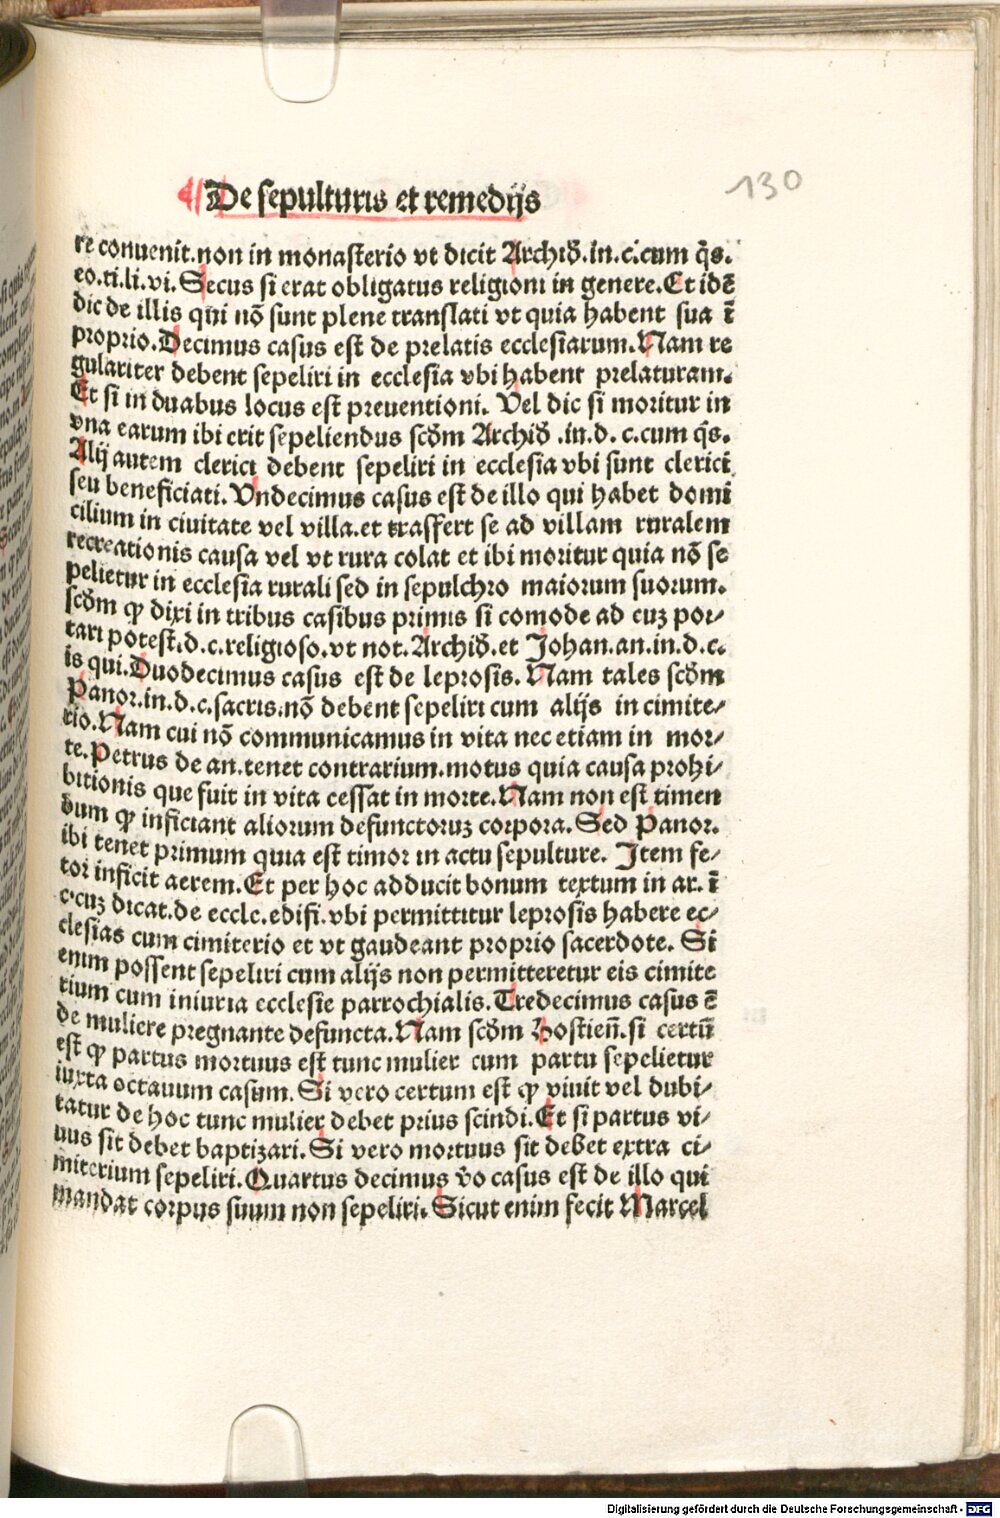 De sepulturis et remedijs
130
re conuenit.non in monasterio vt dicit Archid̄.in.c.cum q̄s.
eo.ti.li.vi.Secus si erat obligatus religioni in genere.Et idē
dic de illis qui nō sunt plene translati vt quia habent sua ī
proprio.Decimus casus est de prelatis ecclesiarum.Nam re
gulariter debent sepeliri in ecclesia vbi habent prelaturam.
Et si in duabus locus est preuentioni. Vel dic si moritur in
vna earum ibi erit sepeliendus scd̄m Archid̄ .in.d. c.cum q̄s.
Alij autem clerici debent sepeliri in ecclesia vbi sunt clerici
seu beneficiati.Vndecimus casus est de illo qui habet domi
cilium in ciuitate vel villa.et trasfert se ad villam ruralem
recreationis causa vel vt rura colat et ibi moritur quia nō se
pelietur in ecclesia rurali sed in sepulchro maiorum suorum.
scd̄m ꝙ dixi in tribus casibus primis si comode ad euꝫ por⸗
tari potest.d.c.religioso.vt not.Archid̄.et Johan.an.in.d.c.
is qui.Duodecimus casus est de leprosis. Nam tales scd̄m
Panor.in.d.c.sacris.nō debent sepeliri cum alijs in cimite⸗
rio.Nam cui nō communicamus in vita nec etiam in mor⸗
te.Petrus de an.tenet contrarium.motus quia causa prohi⸗
bitionis que fuit in vita cessat in morte.Nam non est timen
dum ꝙ inficiant aliorum defunctoruꝫ corpora.Sed Panor.
ibi tenet primum quia est timor in actu sepulture. Item fe⸗
tor inficit aerem.Et per hoc adducit bonum textum in ar.ī
c.cuꝫ dicat.de eccle.edifi.vbi permittitur leprosis habere ec⸗
clesias cum cimiterio et vt gaudeant proprio sacerdote. Si
enim possent sepeliri cum alijs non permitteretur eis cimite
rium cum iniuria ecclesie parrochialis.Tredecimus casus ē
de muliere pregnante defuncta.Nam scd̄m Hostien̄.si certū
est ꝙ partus mortuus est tunc mulier cum partu sepelietur
iuxta octauum casum.Si vero certum est ꝙ viuit vel dubi⸗
tatur de hoc tunc mulier debet prius scindi.Et si partus vi⸗
uus sit debet baptizari.Si vero mortuus sit debet extra ci⸗
miterium sepeliri.Quartus decimus v̄o casus est de illo qui
mandat corpus suum non sepeliri.Sicut enim fecit Marcel
Digitalisierung gefördert durch die Deutsche Forschungsgemeinschaft - DFG